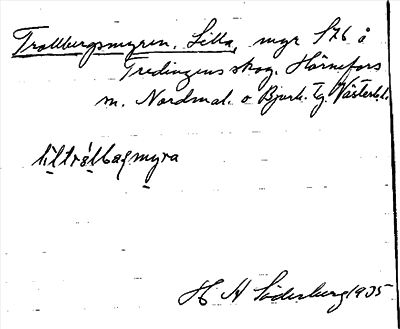 Trollbergsmyren, Lilla, myr S76 å
Tredingens skog. Hörnefors
m. Nordmal. o Bjurh. tg. Västerb.l.
lıltrålbagmyra
H A Söderberg 1935